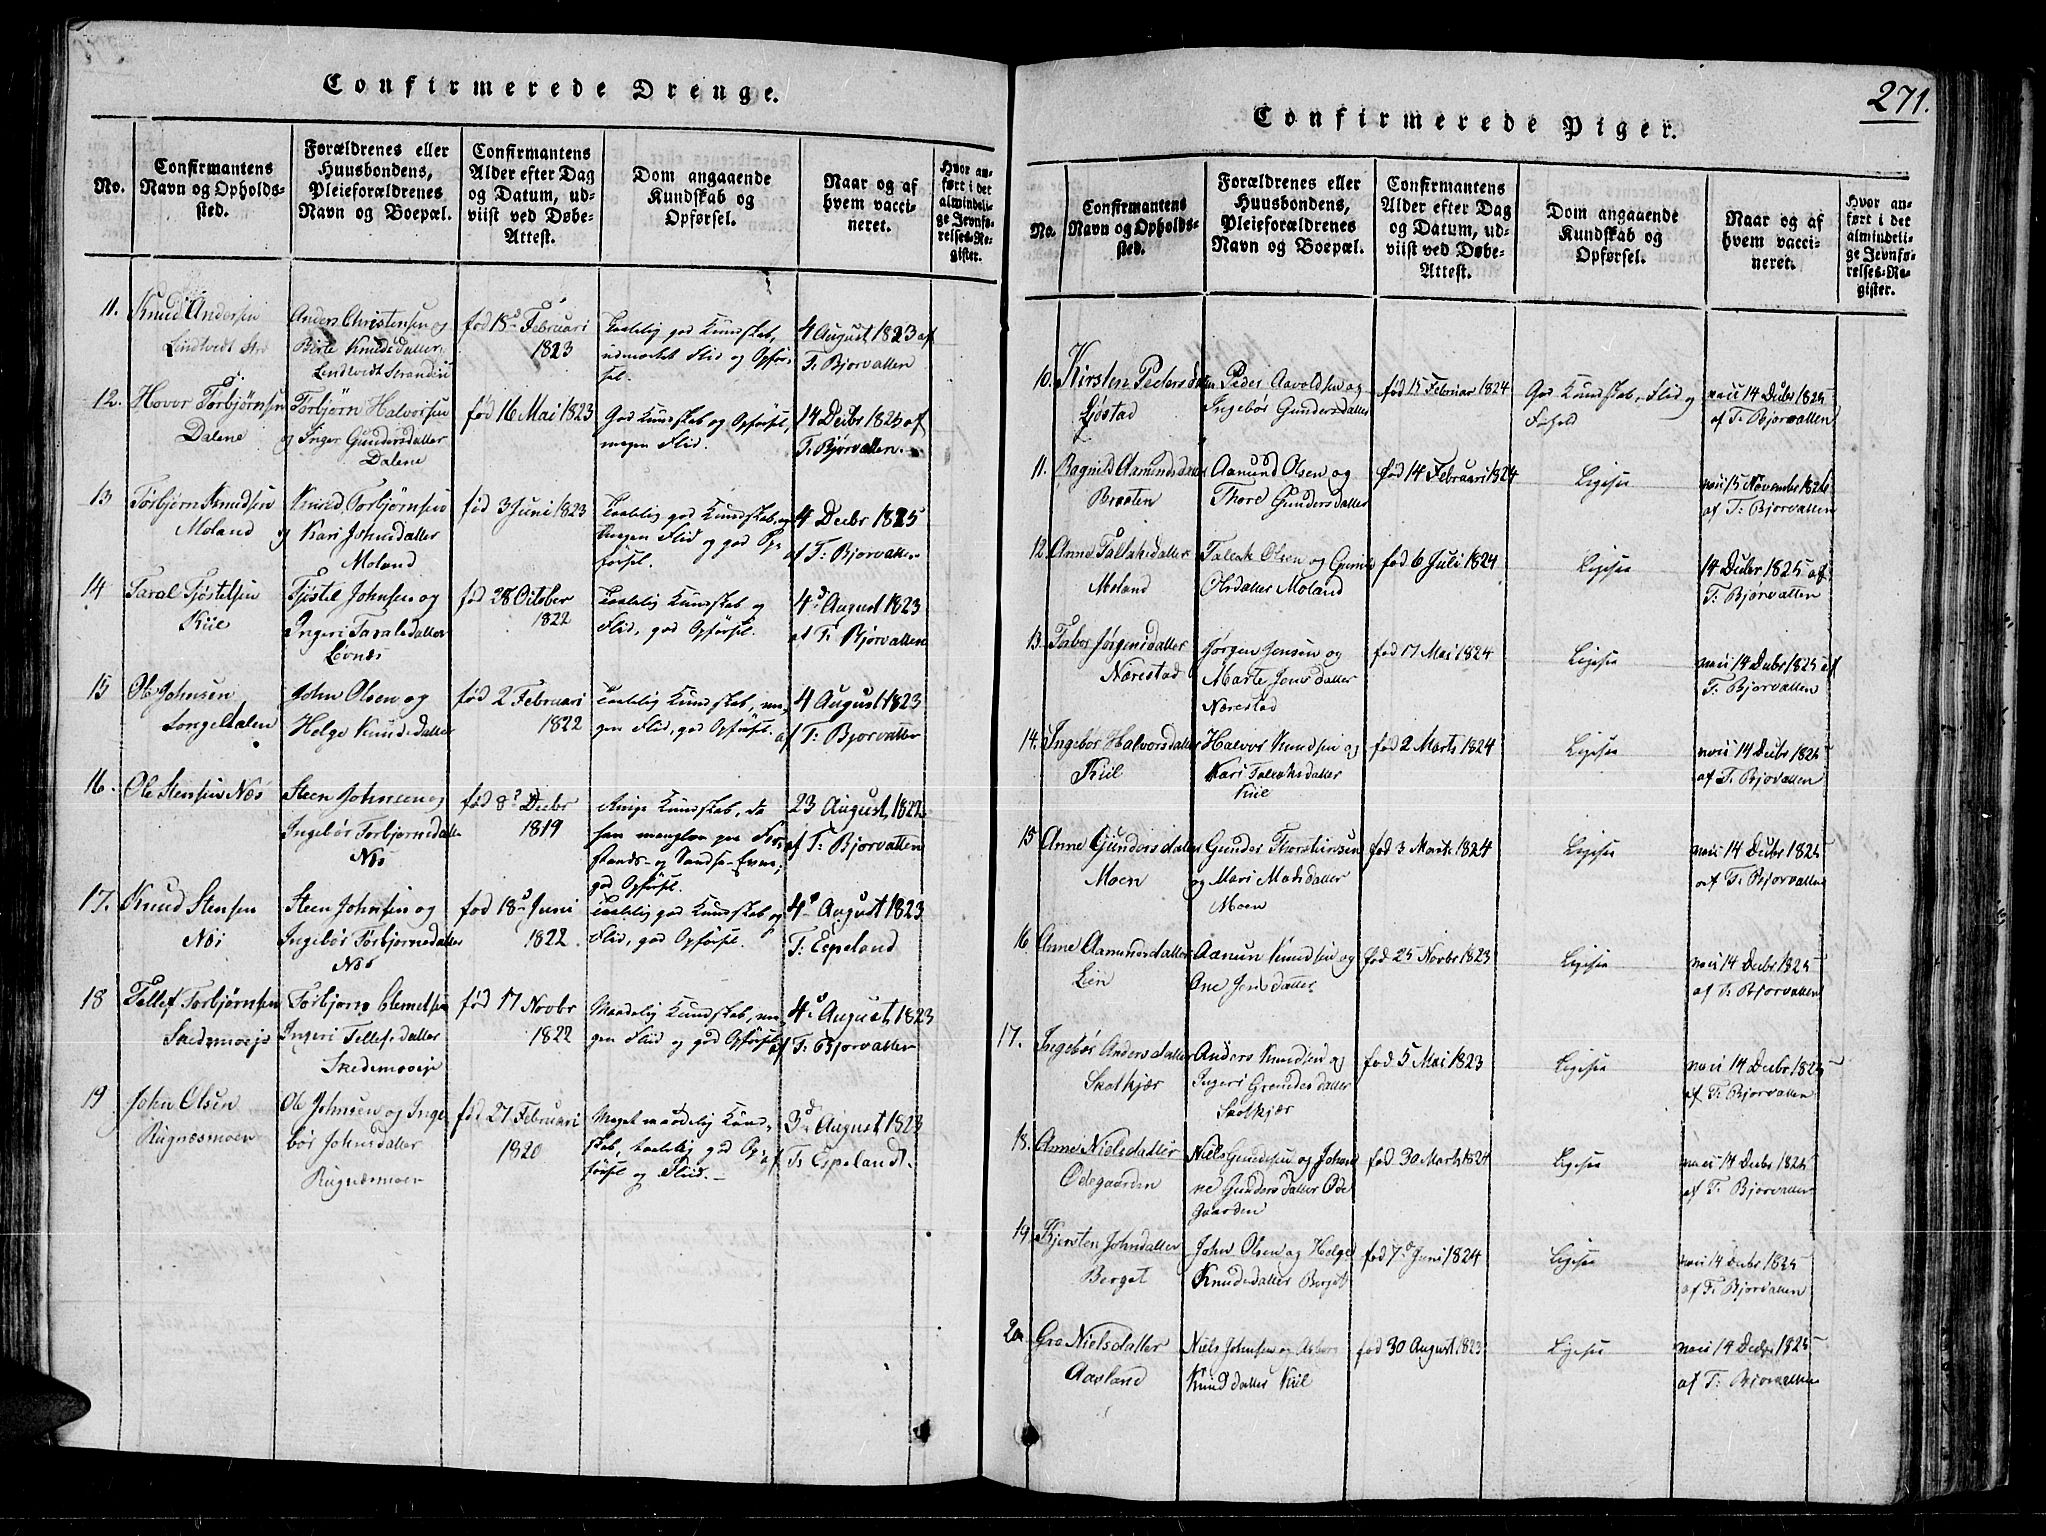 Confirmerede Drenge.
No.
Confirmantens
Navn og Opholds-
sted.
Forældrenes eller
Huusbondens,
Pleieforældrenes
Navn og Boepæl.
Confirmantens
Alder efter Dag
og Datum, ud-
viist ved Døbe-
Attest.
Dom angaaende
Kundskab og
Opførsel.
Naar og af
hvem vacci-
neret.
Hvor an-
ført i det
almindeli-
ge Jevnfø-
relses-Re-
gister.
11. Knud Andersen
Anders Christensen og
Birte Knudsdatter
Lindtvedt Stranden
fød 18d Februari
1823
Taalelig god Kundskab,
udmærket Flid og Opfør-
sel.
4 August 1823 af
T. Bjorvatten
12. Hovor Torbjørnsen
Dalene
Torbjørn Halvorsen
og Inger Gundersdatter
Dalene
fød 16 Mai 1823
God Kundskab og Opførsel,
megen Flid.
14 Decbr 1825 af
T. Bjørvatten.
13 Torbjørn Knudsen
Moland
Knud Torbjörnsen
og Kari Johnsdatter
Moland
fød 3 Juni 1823
Taalelig god Kundskab,
megen Flid og god Op-
førsel.
4 Decbr 1825
af T: Bjorvatten
14 Taral Fjöstelsen
Kile
Fjöstel Johnsen og
Ingeri Taralsdatter
Løvnæs
fød 28 October
1822
Taalelig Kundskab og
Flid, god Opførsel.
4d August 1823
af T. Bjørvatten
15 Ole Johnsen
Songedalen
John Olsen og
Helge Knudsdatter
fød 2 Februari
1822
Taalelig Kundskab, me-
gen Flid, god Opførsel.
4 August 1823
af T: Bjorvatten
16. Ole Stensen Næs
Steen Johnsen og
Ingebör Torbjørnsdatter
Næs
fød 8d Decbr
1819
Ringe Kundskab, da
ham mangler paa For-
stands- og Sands-Evne;
god Opførsel.
23 August, 1822
af T: Bjorvatten
17. Knud Stensen
Næs
Steen Johnsen og
Ingebör Torbjørnsdatter
Næs
fød 18d Juni
1822.
Taalelig god Kundskab og
Flid, god Opførsel.
4d August 1823
T: Espeland
18 Tellef Torbjørnsen
Skedsmoeje
Torbjørn Clemetsen
Ingeri Tellefsdatter
Skedsmoeje
fød 17 Novbr
1822
Maadelig Kundskab, me-
gen Fliid og god Opførsel
4d August, 1823
af T: Bjorvatten
19 John Olsen
Rugnæsmoen
Ole Johnsen og Inge
bör Johnsdatter
Rugnæsmoen
fød 27 Februari
1820
Meget maadelig Kund-
skab, taalelig god Op-
førsel og Fliid.
3d August 1823
af T: Espeland.
271.
Confirmerede Piger.
No.
Confirmantens
Navn og Opholds-
sted.
Forældrenes eller
Huusbondens,
Pleieforældrenes
Navn og Boepæl.
Confirmantens
Alder efter Dag
og Datum, ud-
viist ved Døbe-
Attest.
Dom angaaende
Kundskab og
Opførsel.
Naar og af
hvem vacci-
neret.
Hvor an-
ført i det
almindeli-
ge Jevnfø-
relses-Re-
gister.
10. Kirsten Pedersdatter
Ljøstad
Peder Aavoldsen og
Ingebör Gundersdatter
fød 15 Februar 1824
God Kundskab, Flid og
Forhold
14 Decbr 1825
af T. Bjorvatten
11. Ragnild Aamundsdatter
Braaten
Aanund Olsen og
Thore Gundersdatter
fød 14 Februari 1824
Ligesaa
15 Novembr 1826
af T: Bjorvatten
12 Anne Tallaksdatter
Moland
Talleck Olsen og Gunild
Olsdatter Moland
fød 6 Juli 1824
Ligesaa
14 Decbr 1825 af
T: Bjørvatten
13. Tabor Jørgensdatter
Nærestad
Jørgen Jensen og
Marte Jensdatter
Nærestad
fød 17 Mai 1824
Ligesaa
14 Decbr 1825 af
T. Bjorvatten
14. Ingebör Halvorsdatter
Kiil
Halvor Knudsen og
Kari Taleksdatter
Kiil
fød 2 Marts 1824
Ligesaa
14 Decbr 1825
af T. Bjorvatten
15 Anne Gundersdatter
Moen
Gunder Thorstensen
og Mari Madsdatter
Moen
fød 3 Marts 1824
Ligesaa
14 Decbr 1825
af T: Bjorvatten
16 Anne Aamundsdatter
Lien
Aanun Knudsen og
Ane Jensdatter
fød 25 Novbr 1823
Ligesaa
14 Decbr 1825
af T. Bjorvatten
17. Ingebör Andersdatter
Skotkjær
Anders Knudsen og
Ingeri Gundersdatter
Skotkjær
fød 5 Mai 1823
Ligesaa
14 Decbr 1825
af T. Bjorvatten
18. Anne Nielsdatter
Ødegaarden
Niels Gundersen og Johan
ne Gundersdatter Øde
gaarden
fød 30 Marts 1824
Ligesaa
14 Decbr 1825
af T. Bjorvatten
19. Kjersten Johndatter
Berget
John Olsen og Helge
Knudsdatter Berget
fød 7d Juni 1824
Ligesaa
14 Decbr 1825
af T. Bjorvatten
20 Gro Nielsdatter
Aasland
Niels Johnsen og Asbor
Knudsdatter Kiil
fød 30 August 1823
Ligesaa
14 Decbr 1825
af T: Bjorvatten